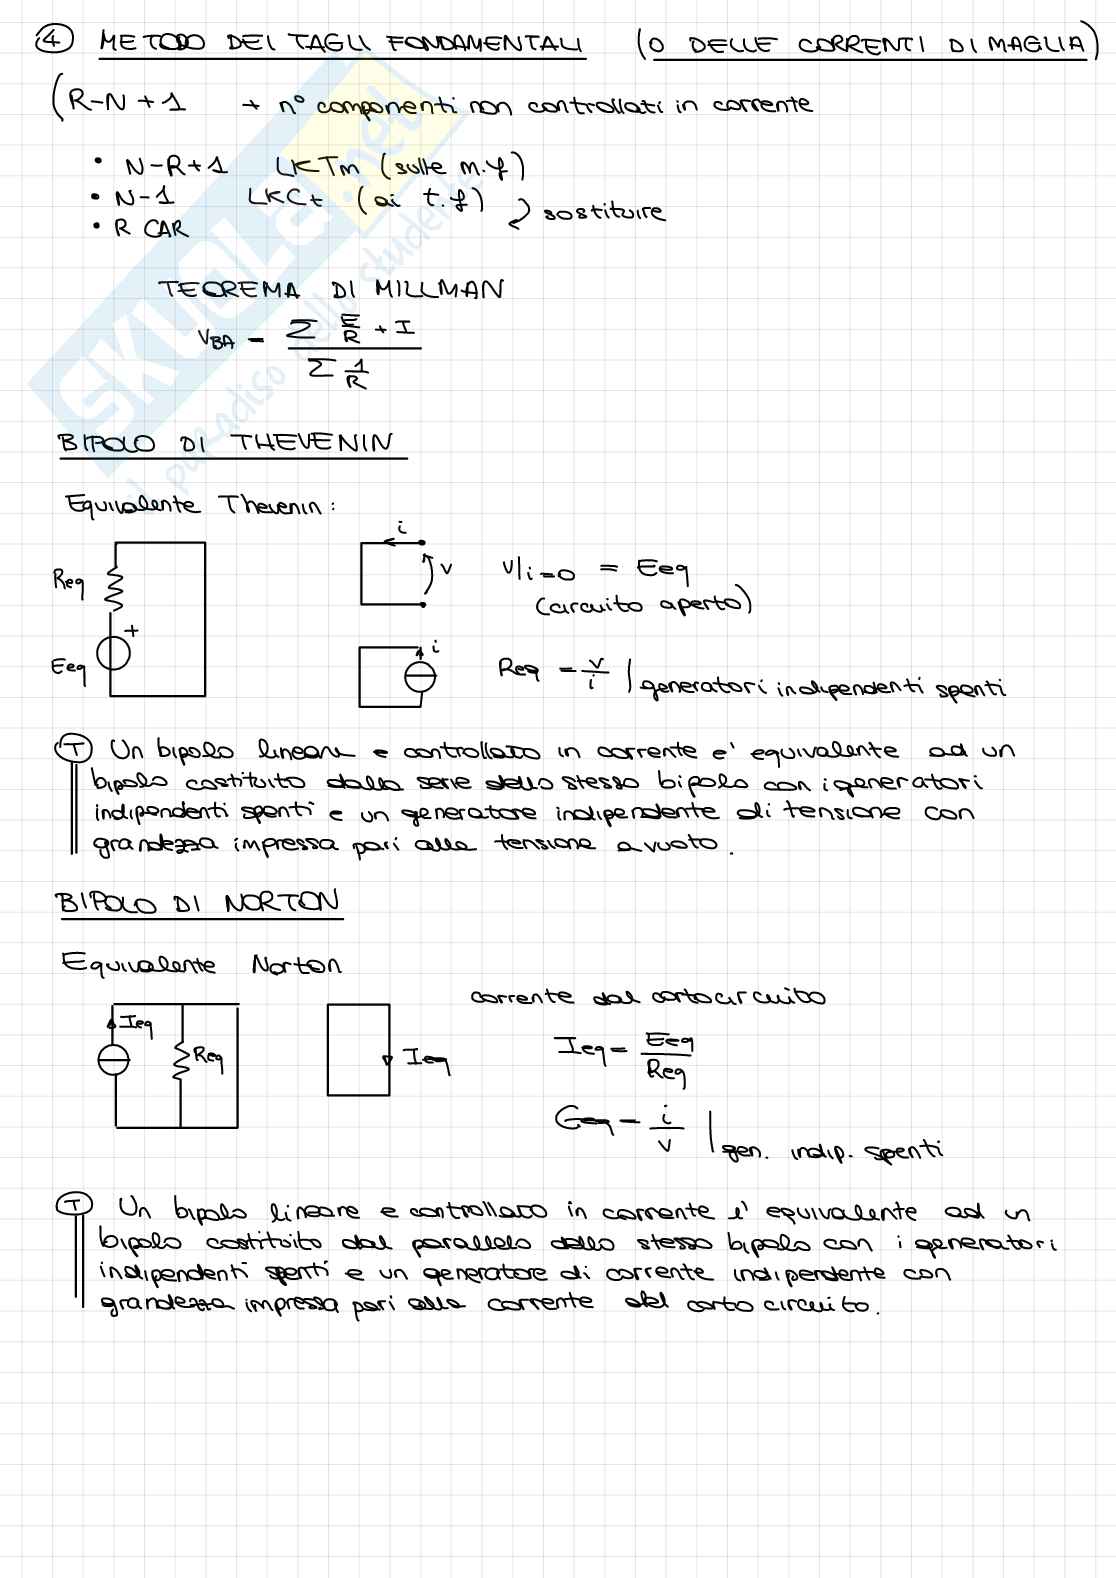 ④ METODO DEI TAGLI FONDAMENTALI (O DELLE CORRENTI DI MAGLIA)
(R-N+1 + n° componenti non controllati in corrente
• N-R+1 LKTm (sulle m.f)
• N-1 LKCt (ai t.f)
sostituire
• R CAR
TEOREMA DI MILLMAN
VBA = Σ E/R + I / Σ 1/R
BIPOLO DI THEVENIN
Equivalente Thevenin:
Req
+
Eeq
i
v
v|i=0 = Eeq
(circuito aperto)
i
Req = v/i | generatori indipendenti spenti
Ⓣ Un bipolo lineare e controllato in corrente e' equivalente ad un
bipolo costituito dalla serie dello stesso bipolo con i generatori
indipendenti spenti e un generatore indipendente di tensione con
grandezza impressa pari alla tensione a vuoto.
BIPOLO DI NORTON
Equivalente Norton
Ieq
Req
Ieq
corrente dal cortocircuito
Ieq = Eeq/Req
Geq = i/v | gen. indip. spenti
Ⓣ Un bipolo lineare e controllato in corrente e' equivalente ad un
bipolo costituito dal parallelo dello stesso bipolo con i generatori
indipendenti spenti e un generatore di corrente indipendente con
grandezza impressa pari alla corrente del corto circuito.
SKUOLA.net
il paradiso dello studente